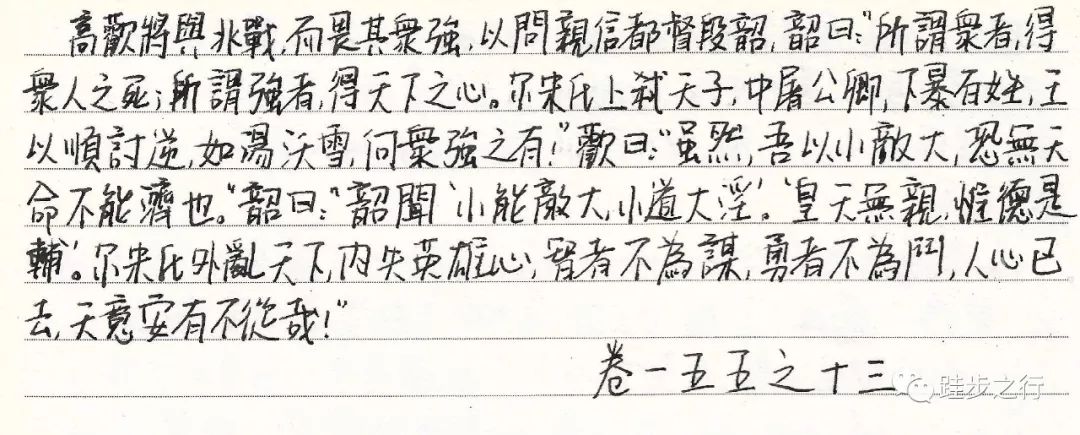 高歡將與兆戰,而畏其衆強,以問親信都督段韶,韶曰:"所謂衆者,得
衆人之死;所謂強者,得天下之心。尔朱氏上弒天子,中屠公卿,下暴百姓,王
以順討逆,如湯沃雪,何衆強之有!"歡曰:"虽然,吾以小敵大,恐無天
命不能濟也。"韶曰:"韶聞'小能敵大,小道大淫'。'皇天無親,惟德是
輔'。尔朱氏外亂天下,内失英雄心,智者不為謀,勇者不為鬥,人心已
去,天意安有不從哉!"
卷一五五之十三
跬步之行